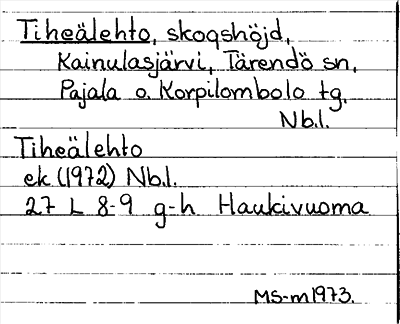 Tiheälehto, skogshöjd,
Kainulasjärvi, Tärendö sn,
Pajala o. Korpilombolo tg,
Nb.l.
Tiheälehto
ek (1972) Nb.l.
27 L 8-9 g-h Haukivuoma
MS-m1973.